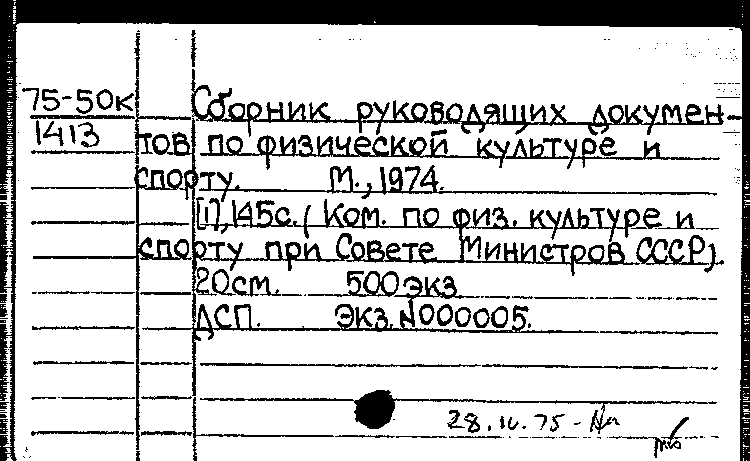 75-50к Сборник руководящих докумен-
1413 тов по физической культуре и
спорту. М., 1974.
[1], 145с. (Ком. по физ. культуре и
спорту при Совете Министров СССР).
20см. 500 экз
ДСП. Экз. №00005.
28.IV.75 -